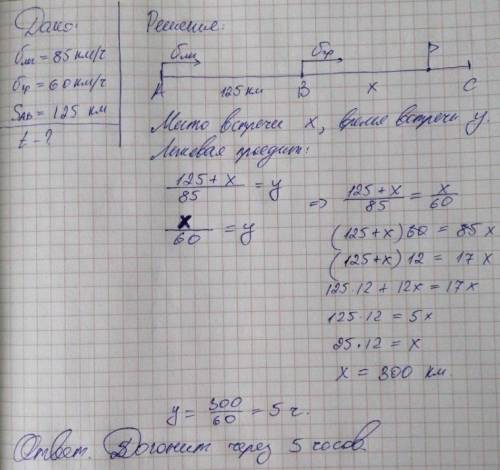 Дано:
υлег = 85 км/ч
υгр = 60 км/ч
SАВ = 125 км
t - ?
Решение:
υлег υгр P
A 125 км B x C
Место встречи x, время встречи y.
Легковая проедит:
125 + x / 85 = y
x / 60 = y
=> 125 + x / 85 = x / 60
(125+x) 60 = 85 x
(125+x) 12 = 17 x
125·12 + 12x = 17x
125·12 = 5x
25·12 = x
x = 300 км.
y = 300 / 60 = 5 ч.
Ответ. Догонит через 5 часов.